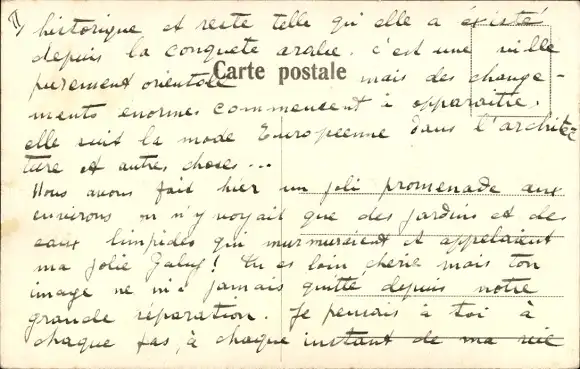 II
historique et reste telle qu'elle a existé
depuis la conquete arabe. C'est une ville
purement orientale mais des change-
Carte postale
ments enormes commencent à apparaître.
elle suit la mode Européenne dans l'architec
ture et autres choses...
Nous avons fait hier un joli promenade aux
environs on n'y voyait que des jardins et des
eaux limpides qui murmuraient et appelaient
ma jolie ! tu es loin cherie mais ton
image ne m'a jamais quitté depuis notre
grande séparation. Je pensais à toi à
chaque pas, à chaque instant de ma